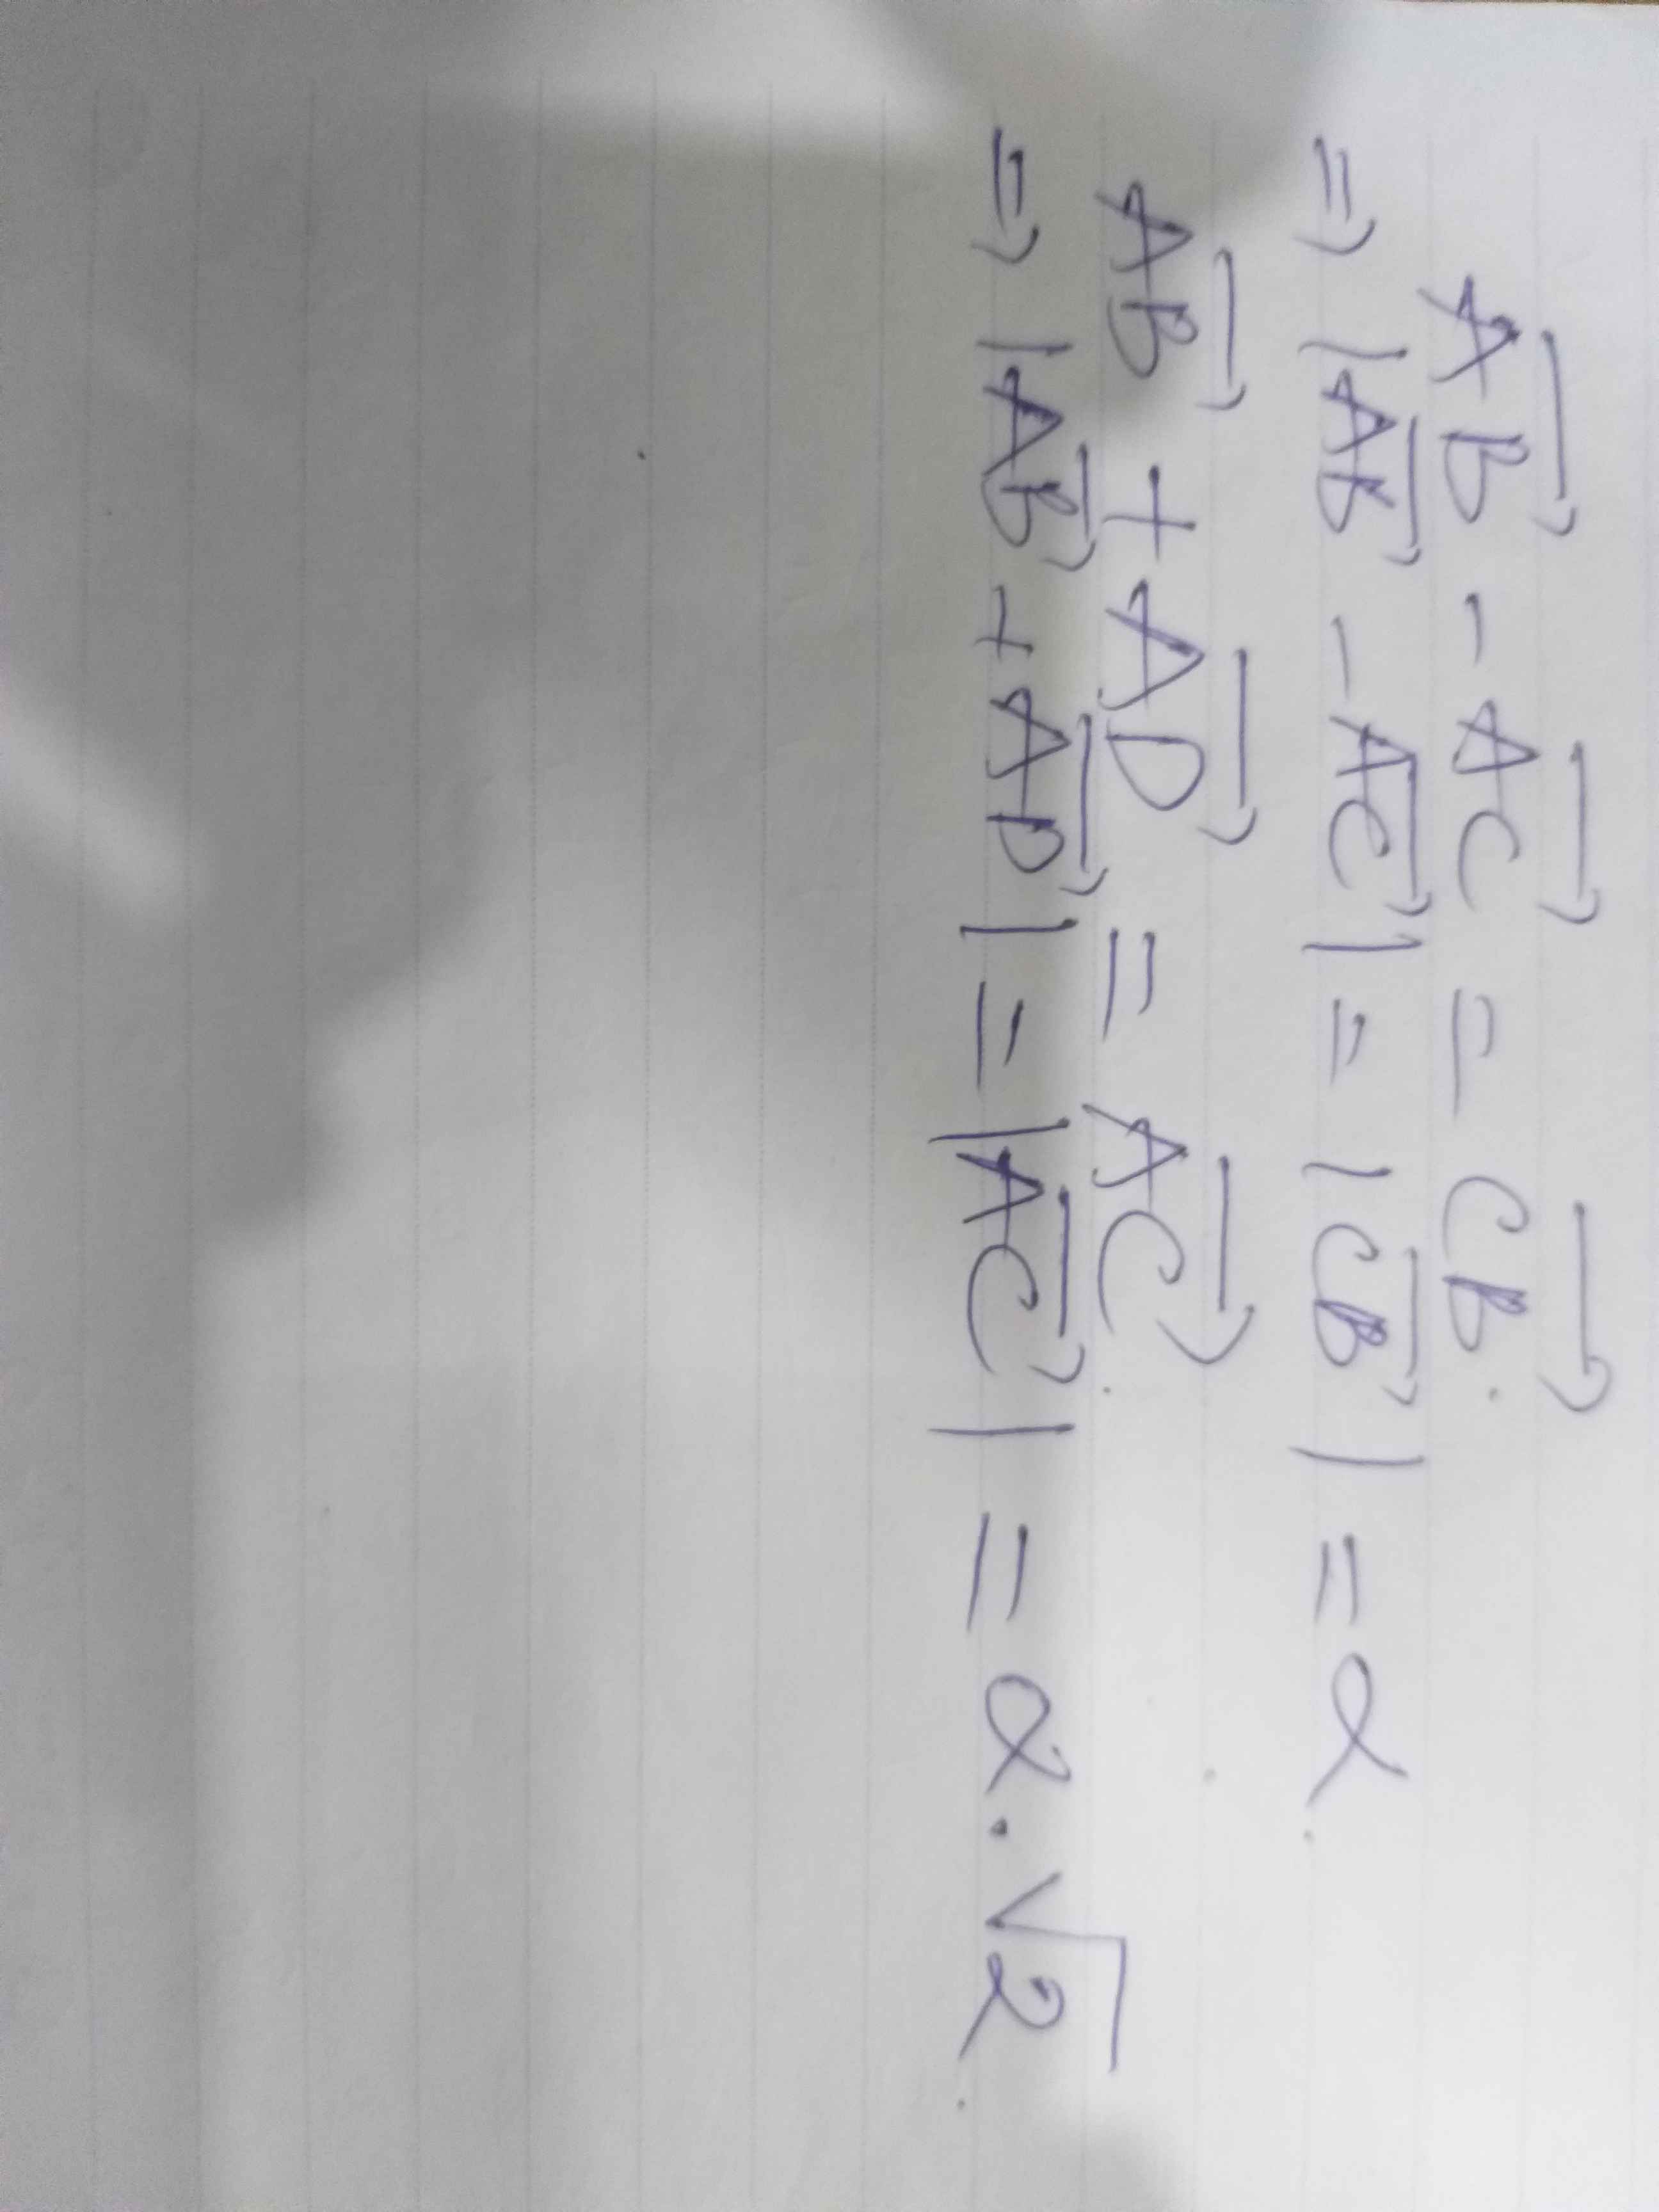 $\overrightarrow{AB} - \overrightarrow{AC} = \overrightarrow{CB}.$
$\Rightarrow |\overrightarrow{AB} - \overrightarrow{AC}| = |\overrightarrow{CB}| = a.$
$\overrightarrow{AB} + \overrightarrow{AD} = \overrightarrow{AC}.$
$\Rightarrow |\overrightarrow{AB} + \overrightarrow{AD}| = |\overrightarrow{AC}| = a.\sqrt{2}.$